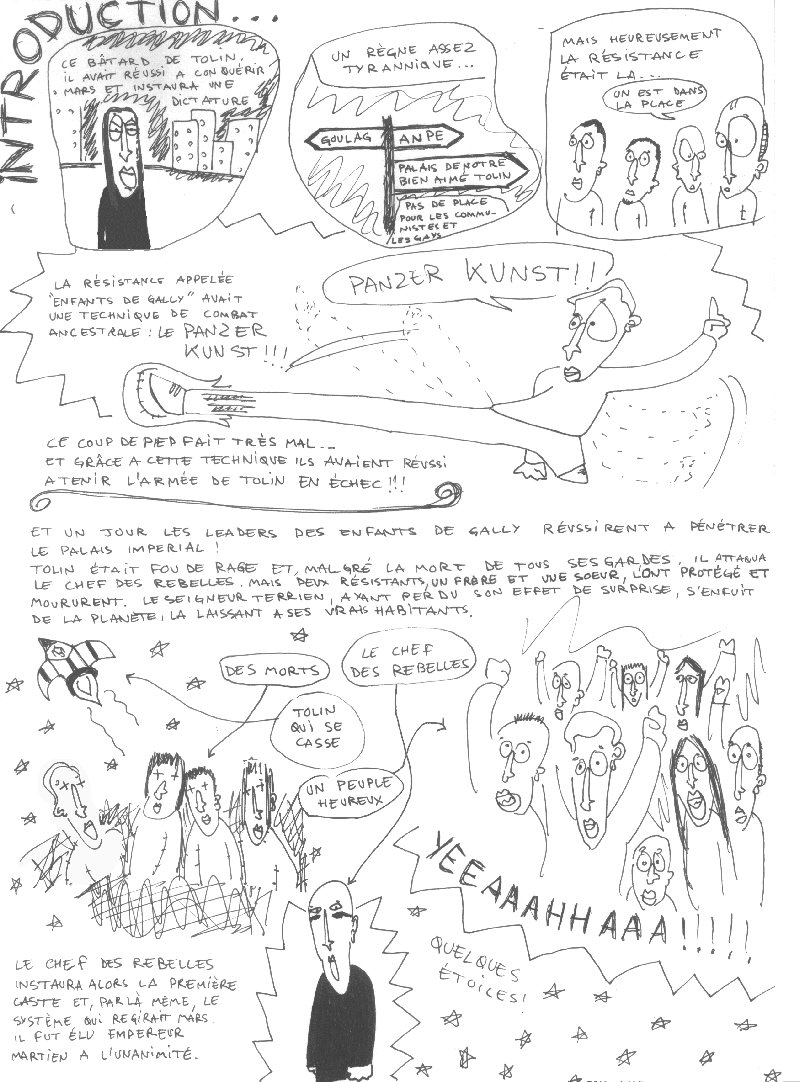 INTRODUCTION...
CE BÂTARD DE TOLIN,
IL AVAIT RÉUSSI A CONQUÉRIR
MARS ET INSTAURA UNE
DICTATURE
UN RÈGNE ASSEZ
TYRANNIQUE...
GOULAG
ANPE
PALAIS DE NOTRE
BIEN AIMÉ TOLIN
PAS DE PLACE
POUR LES COMMU-
NISTES ET
LES GAYS
MAIS HEUREUSEMENT
LA RÉSISTANCE
ÉTAIT LA...
ON EST DANS
LA PLACE
t
LA RÉSISTANCE APPELÉE
"ENFANTS DE GALLY" AVAIT
UNE TECHNIQUE DE COMBAT
ANCESTRALE : LE PANZER
KUNST!!!
PANZER KUNST!!
CE COUP DE PIED FAIT TRÈS MAL...
ET GRÂCE A CETTE TECHNIQUE ILS AVAIENT RÉUSSI
A TENIR L'ARMÉE DE TOLIN EN ÉCHEC!!!
ET UN JOUR LES LEADERS DES ENFANTS DE GALLY RÉUSSIRENT A PÉNÉTRER
LE PALAIS IMPERIAL!
TOLIN ÉTAIT FOU DE RAGE ET, MALGRÉ LA MORT DE TOUS SES GARDES, IL ATTAQUA
LE CHEF DES REBELLES. MAIS DEUX RÉSISTANTS, UN FRÈRE ET UNE SOEUR, L'ONT PROTÉGÉ ET
MOURURENT. LE SEIGNEUR TERRIEN, AYANT PERDU SON EFFET DE SURPRISE, S'ENFUIT
DE LA PLANÈTE, LA LAISSANT A SES VRAIS HABITANTS.
DES MORTS
LE CHEF
DES REBELLES
TOLIN
QUI SE
CASSE
UN PEUPLE
HEUREUX
YEEAAAHHAAA!!!!!
QUELQUES
ÉTOILES!
LE CHEF DES REBELLES
INSTAURA ALORS LA PREMIÈRE
CASTE ET, PAR LÀ MÊME, LE
SYSTÈME QUI REGIRAIT MARS.
IL FUT ÉLU EMPEREUR
MARTIEN A L'UNANIMITÉ.